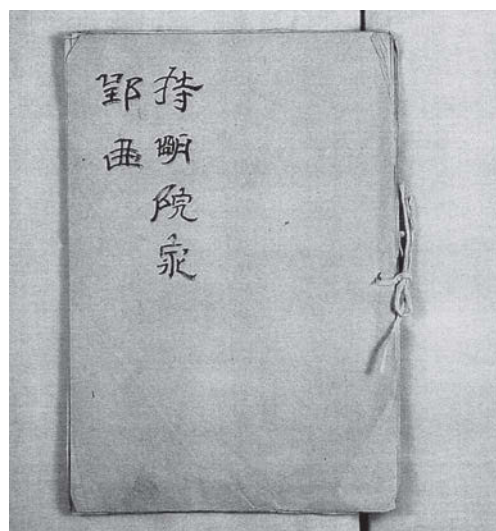 持明院家
郢曲